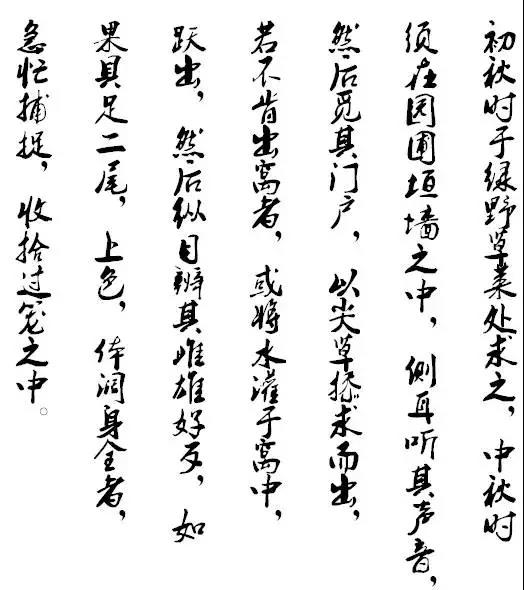 初秋时于绿野草菜处求之，中秋时
须在园圃垣墙之中，侧耳听其声音，
然后觅其门户，以尖草掭求而出，
若不肯出窝者，或将水灌于窝中，
跃出，然后纵目辨其雌雄好歹，如
果具足二尾，上色，体阔身全者，
急忙捕捉，收拾过笼之中。